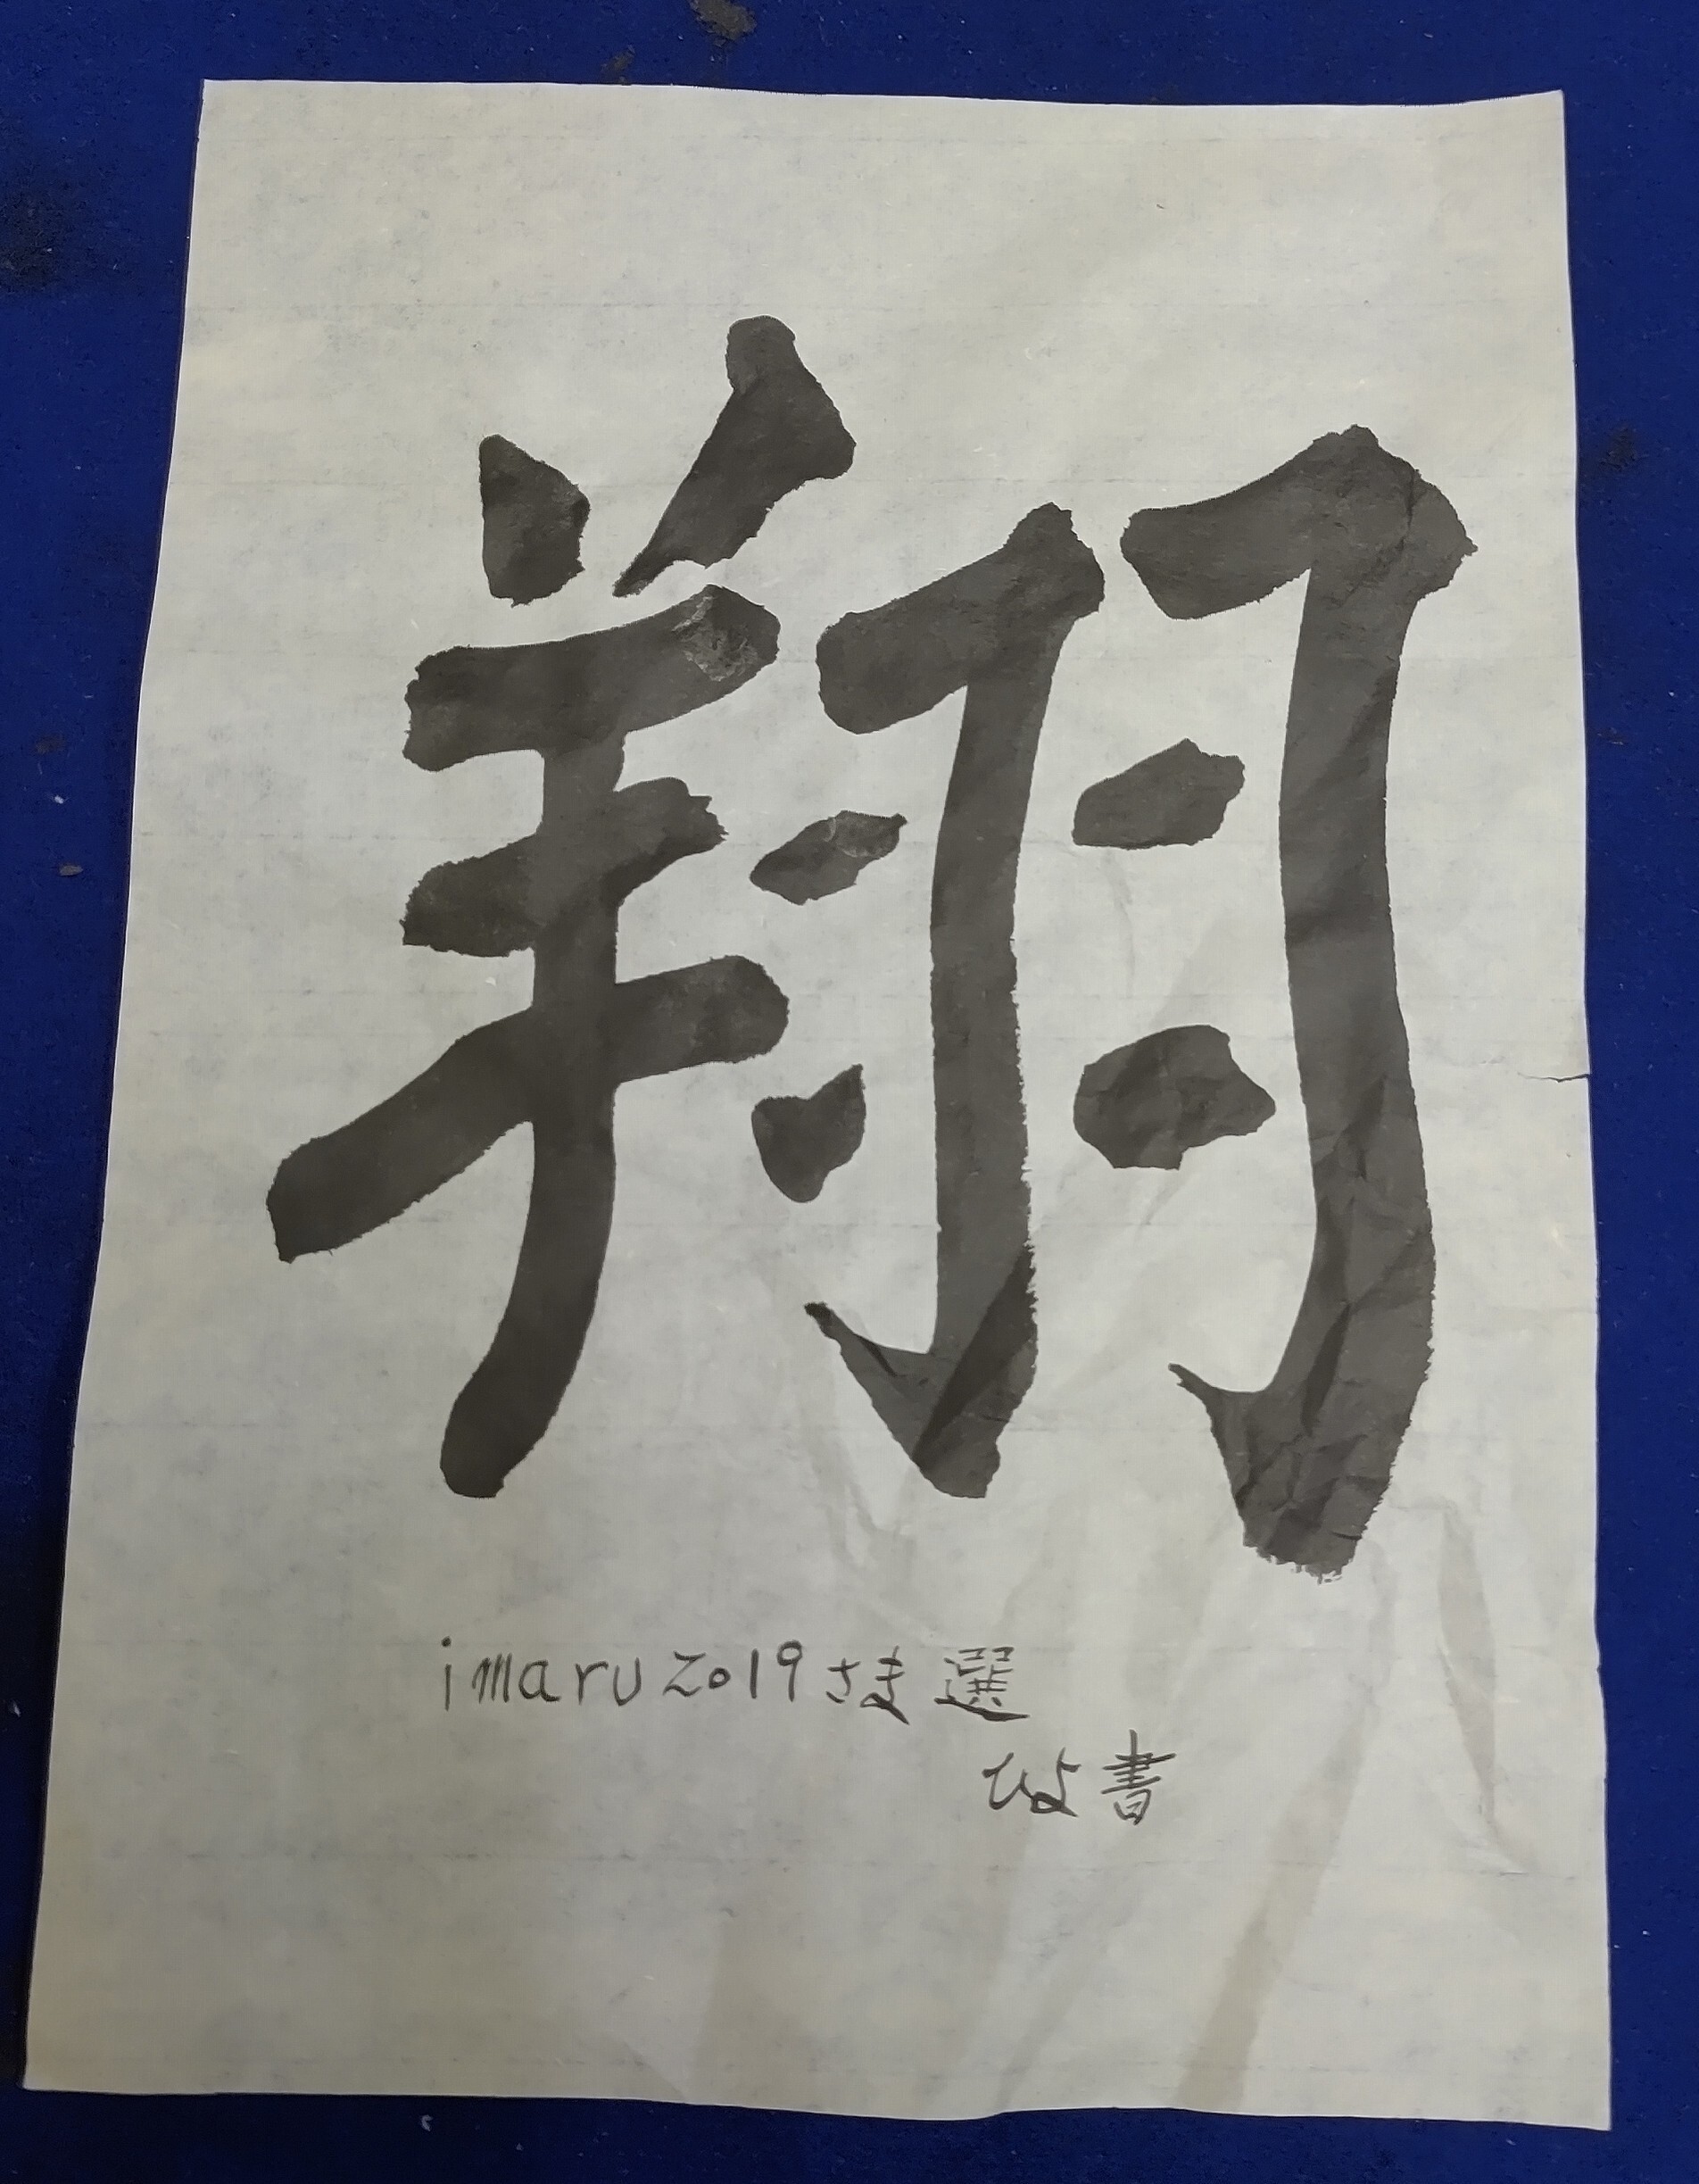 翔
imaru2019さま選
ひよ書